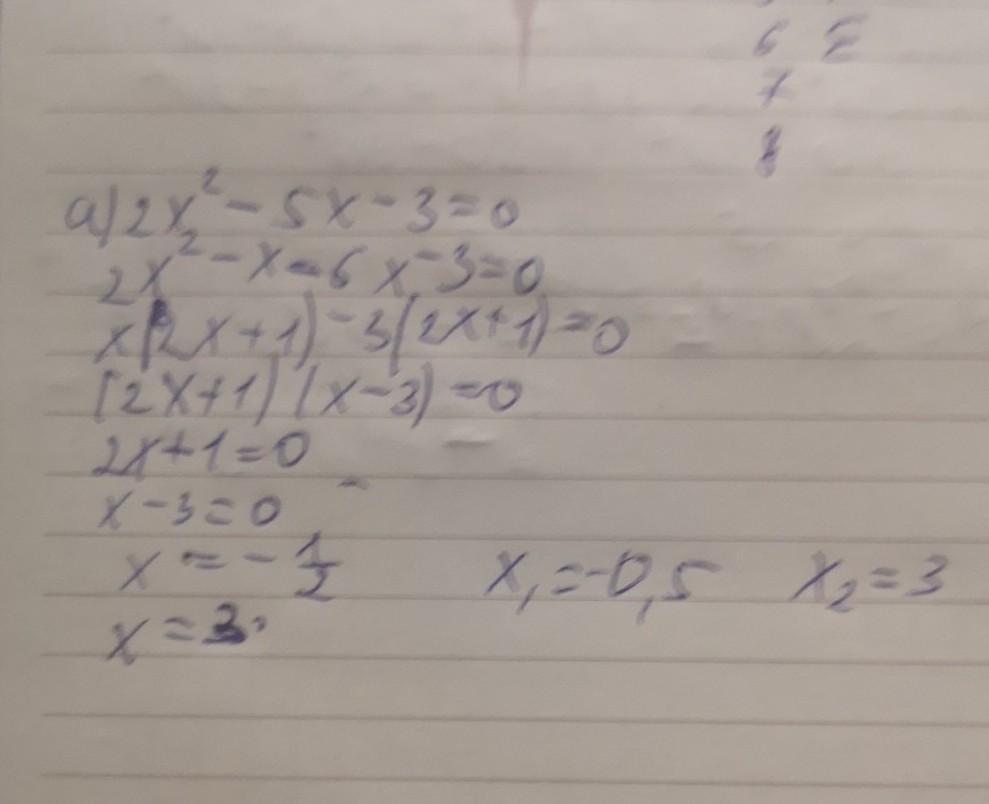 6 Σ
7
8
a) 2x² - 5x - 3 = 0
2x² - x - 6x - 3 = 0
x(2x+1) - 3(2x+1) = 0
(2x+1) (x-3) = 0
2x+1=0
x-3=0
x = -1/2 x₁=-0,5 x₂=3
x = 3.